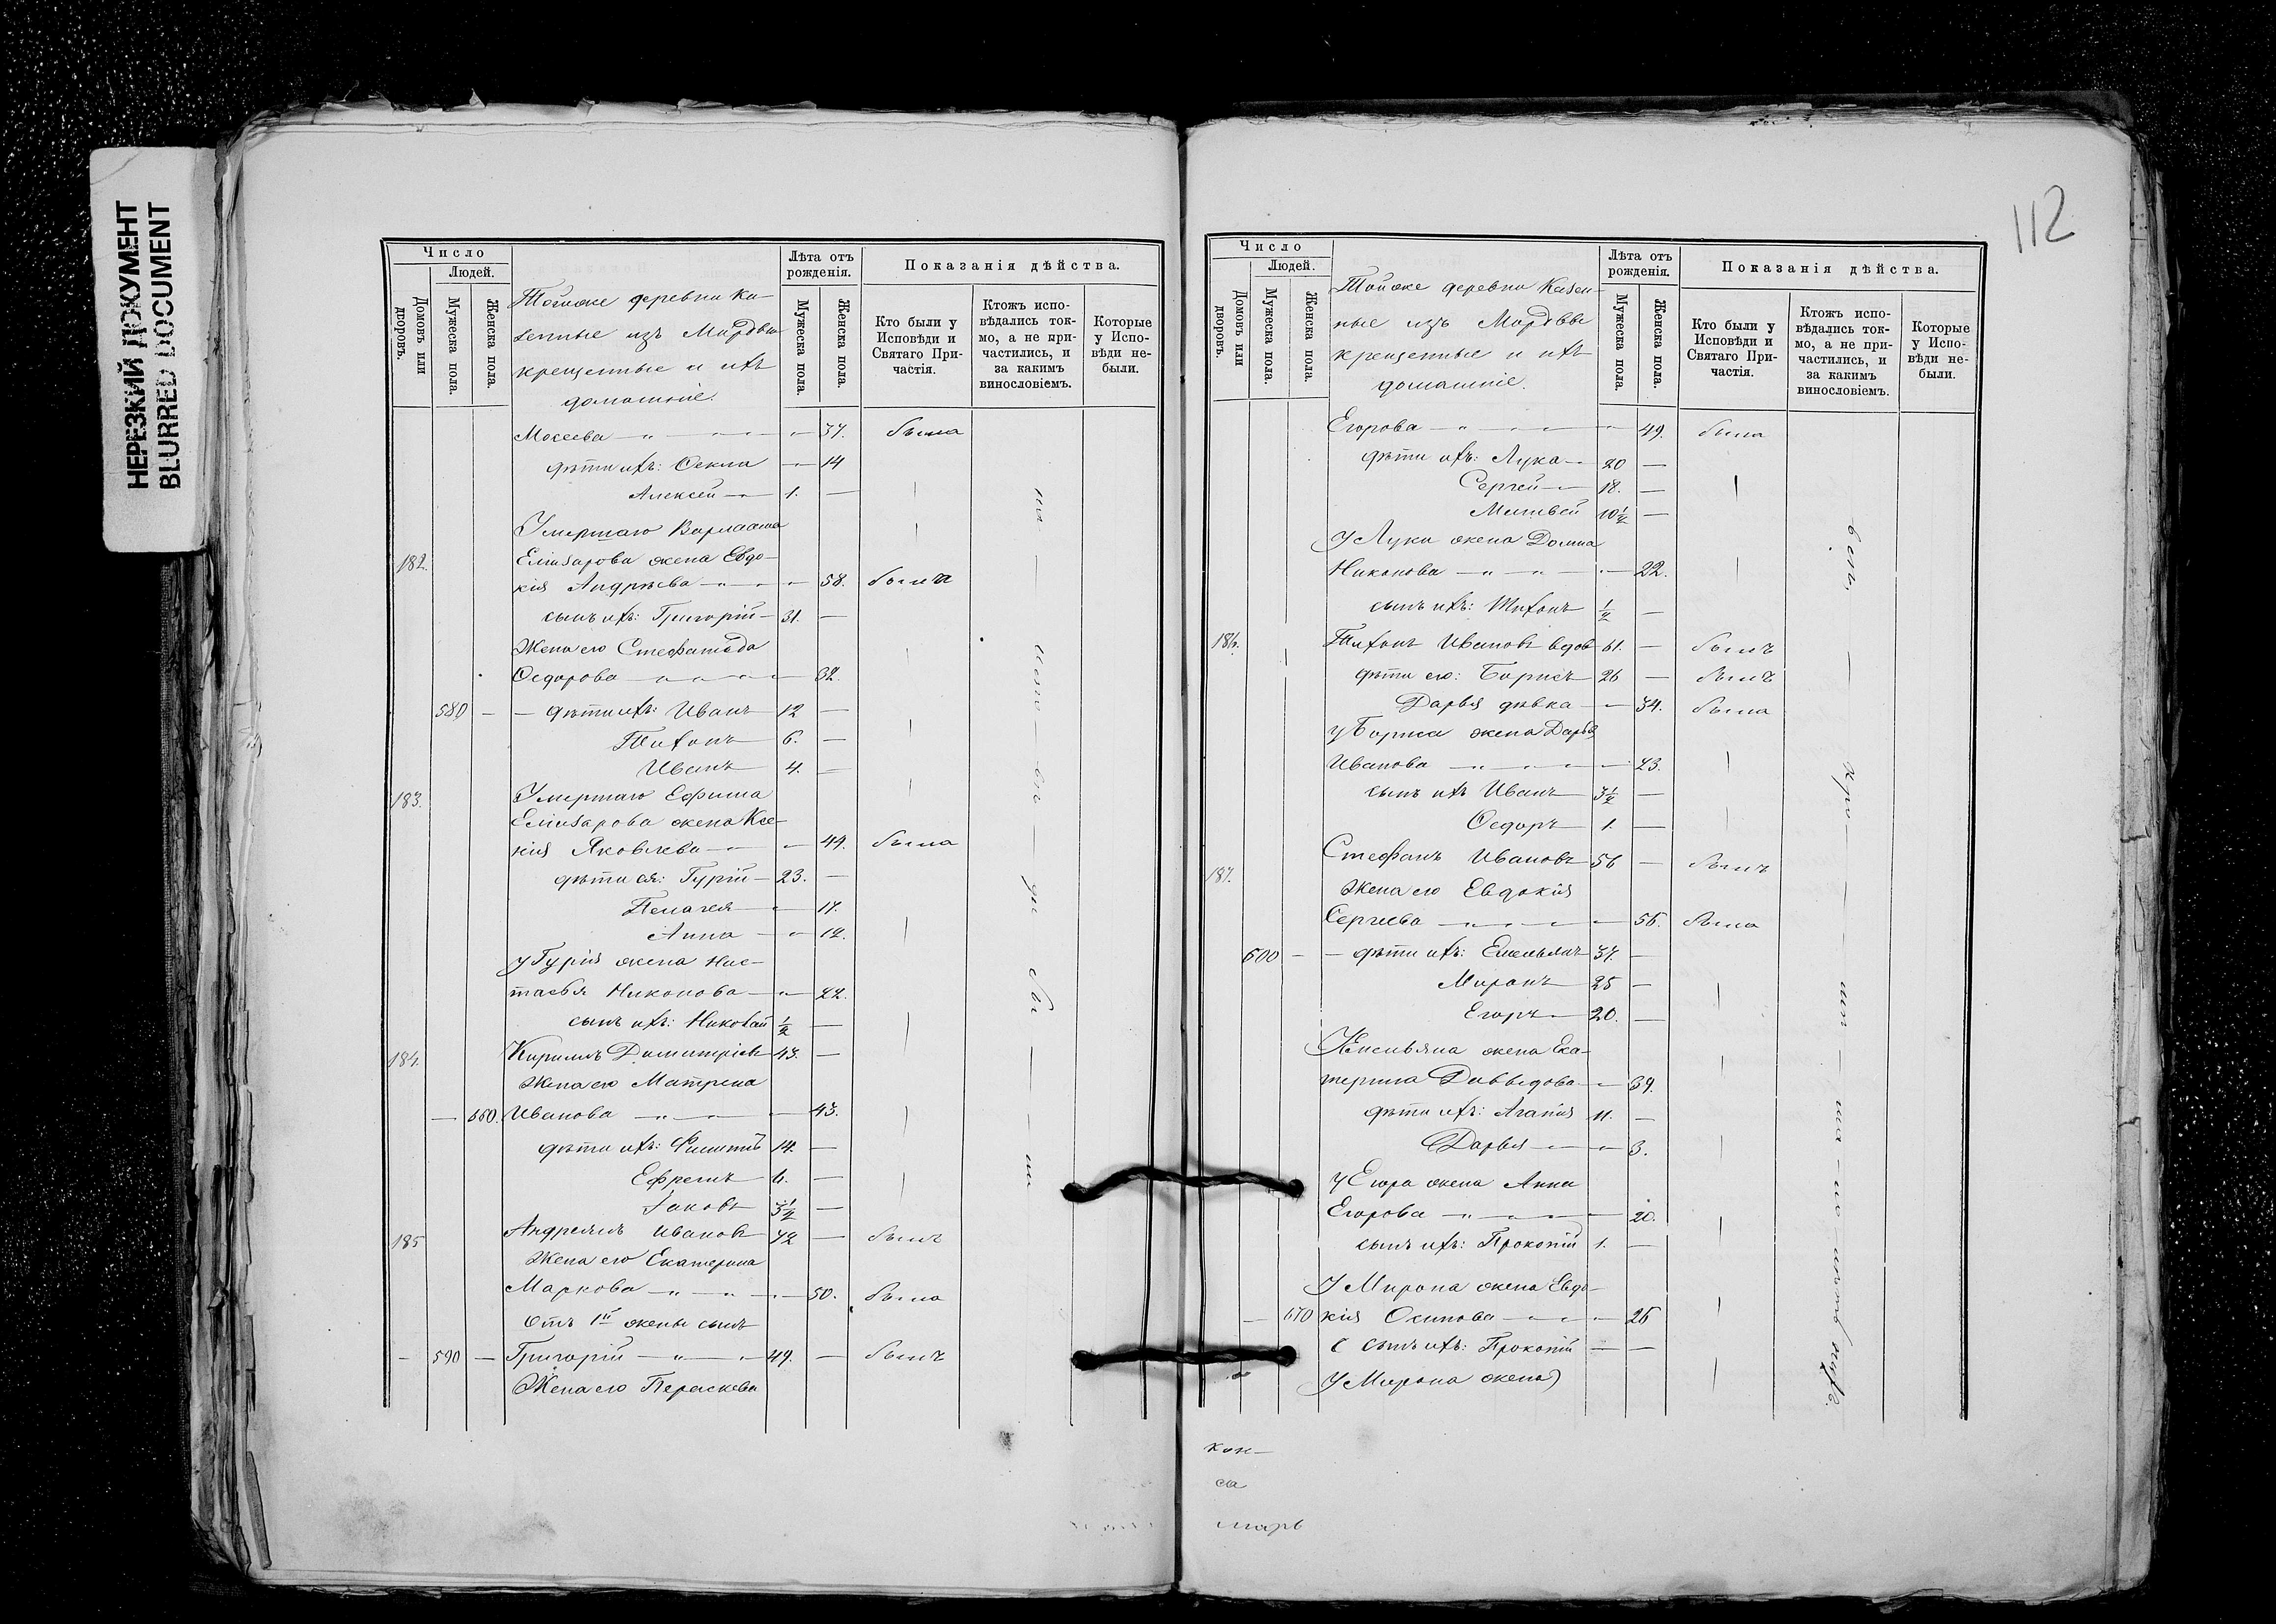 НЕРЕЗКИЙ ДОКУМЕНТ
BLURRED DOCUMENT
Число
Людей.
Домовъ или дворовъ.
Мужеска пола.
Женска пола.
Тойже деревни Ка-
зенные изъ Мордвы
крещенные и ихъ
домашніе.
Лѣта отъ рожденія.
Мужеска пола.
Женска пола.
Показанія дѣйства.
Кто были у Исповѣди и Святаго При-частія.
Ктожъ испо-вѣдались ток-мо, а не при-частились, и за какимъ винословіемъ.
Которые у Испо-вѣди не-были.
Мосеева — " — 37. была
дѣти ихъ: Ѳекла — 14
Алексей — 1. —
Умершаго Варлаама
182. Елизарова жена Евдо-
кія Андрѣева — " — 58. была
сынъ ихъ: Григорій — 31. —
Жена его Стефанида
Ѳедорова — 32.
580 — — дѣти ихъ: Иванъ 12 —
Тихонъ 6. —
Иванъ 4. —
183. Умершаго Ефима
Елизарова жена Ксе-
нія Яковлева — 44. была
дѣти ея: Гурій — 23. —
Пелагея — 17.
Анна — 12.
у Гурія жена Нас-
тасья Никонова — 22.
сынъ ихъ: Николай ½ —
184. Кириллъ Димитріевъ 43. —
Жена его Матрена
— 660. Иванова — " — 43.
дѣти ихъ: Филиппъ 14. —
Ефремъ 6. —
Іаковъ 3½ —
185 Андреянъ Ивановъ 72 — былъ
Жена его Екатерина
Маркова — " — 50. была
Отъ 1й жены сынъ
— 590 — Григорій — " — 49. — былъ
Жена его Параскева
112
Число
Людей.
Домовъ или дворовъ.
Мужеска пола.
Женска пола.
Тойже деревни Казен-
ные изъ Мордвы
крещенные и ихъ
домашніе.
Лѣта отъ рожденія.
Мужеска пола.
Женска пола.
Показанія дѣйства.
Кто были у Исповѣди и Святаго При-частія.
Ктожъ испо-вѣдались ток-мо, а не при-частились, и за какимъ винословіемъ.
Которые у Испо-вѣди не-были.
Егорова — " — 49. была
дѣти ихъ: Лука — 20 —
Сергей — 18. —
Матвей 10½ —
У Луки жена Домна
Никонова — " — 22.
сынъ ихъ: Тихонъ ½ —
186. Тихонъ Ивановъ вдов 61. — былъ
дѣти его: Борисъ 26 — былъ
Дарья дѣвка — 34. была
у Бориса жена Дарья
Иванова — " — 23.
сынъ ихъ Иванъ 3½ —
Ѳедоръ 1. —
187. Стефанъ Ивановъ 56 — былъ
Жена его Евдокія
Сергеева — 56. была
600 — — дѣти ихъ: Емельянъ 37. —
Миронъ 25 —
Егоръ 20. —
Емельяна жена Ека-
терина Давыдова — 39.
дѣти ихъ: Агапія 11. —
Дарья — 3.
у Егора жена Анна
Егорова — " — 20.
сынъ ихъ: Прокопій 1. —
У Мирона жена Евдо-
— 670 кія Осипова — 26
сынъ ихъ: Прокопій — —
У Мирона жена)